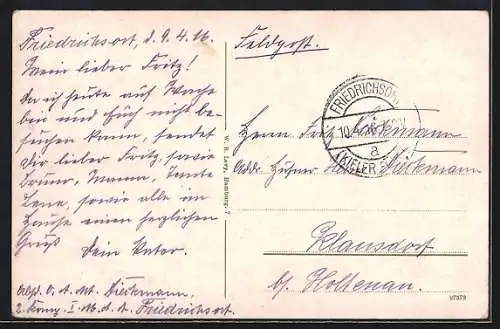 Friedrichsort, d. 9.4.16.
Mein lieber Fritz!
Da ich heute auf Wache
bin und Euch nicht be-
suchen kann, sendet
Dir lieber Fritz, sowie
Mama, Tante
Lene, sowie alle im
Hause einen herzlichen
Gruß
Dein Vater.
Absd. O. A. Mt. Dieckmann,
2. Komp. I. M. A. A. Friedrichsort.
W. R. Levy, Hamburg. 7
Feldpost.
FRIEDRICHSORT
10.4.16
a
(KIELER
Herrn Fritz Dieckmann
Addr. Dieckmann
Klausdorf
b/ Holtenau.
97373